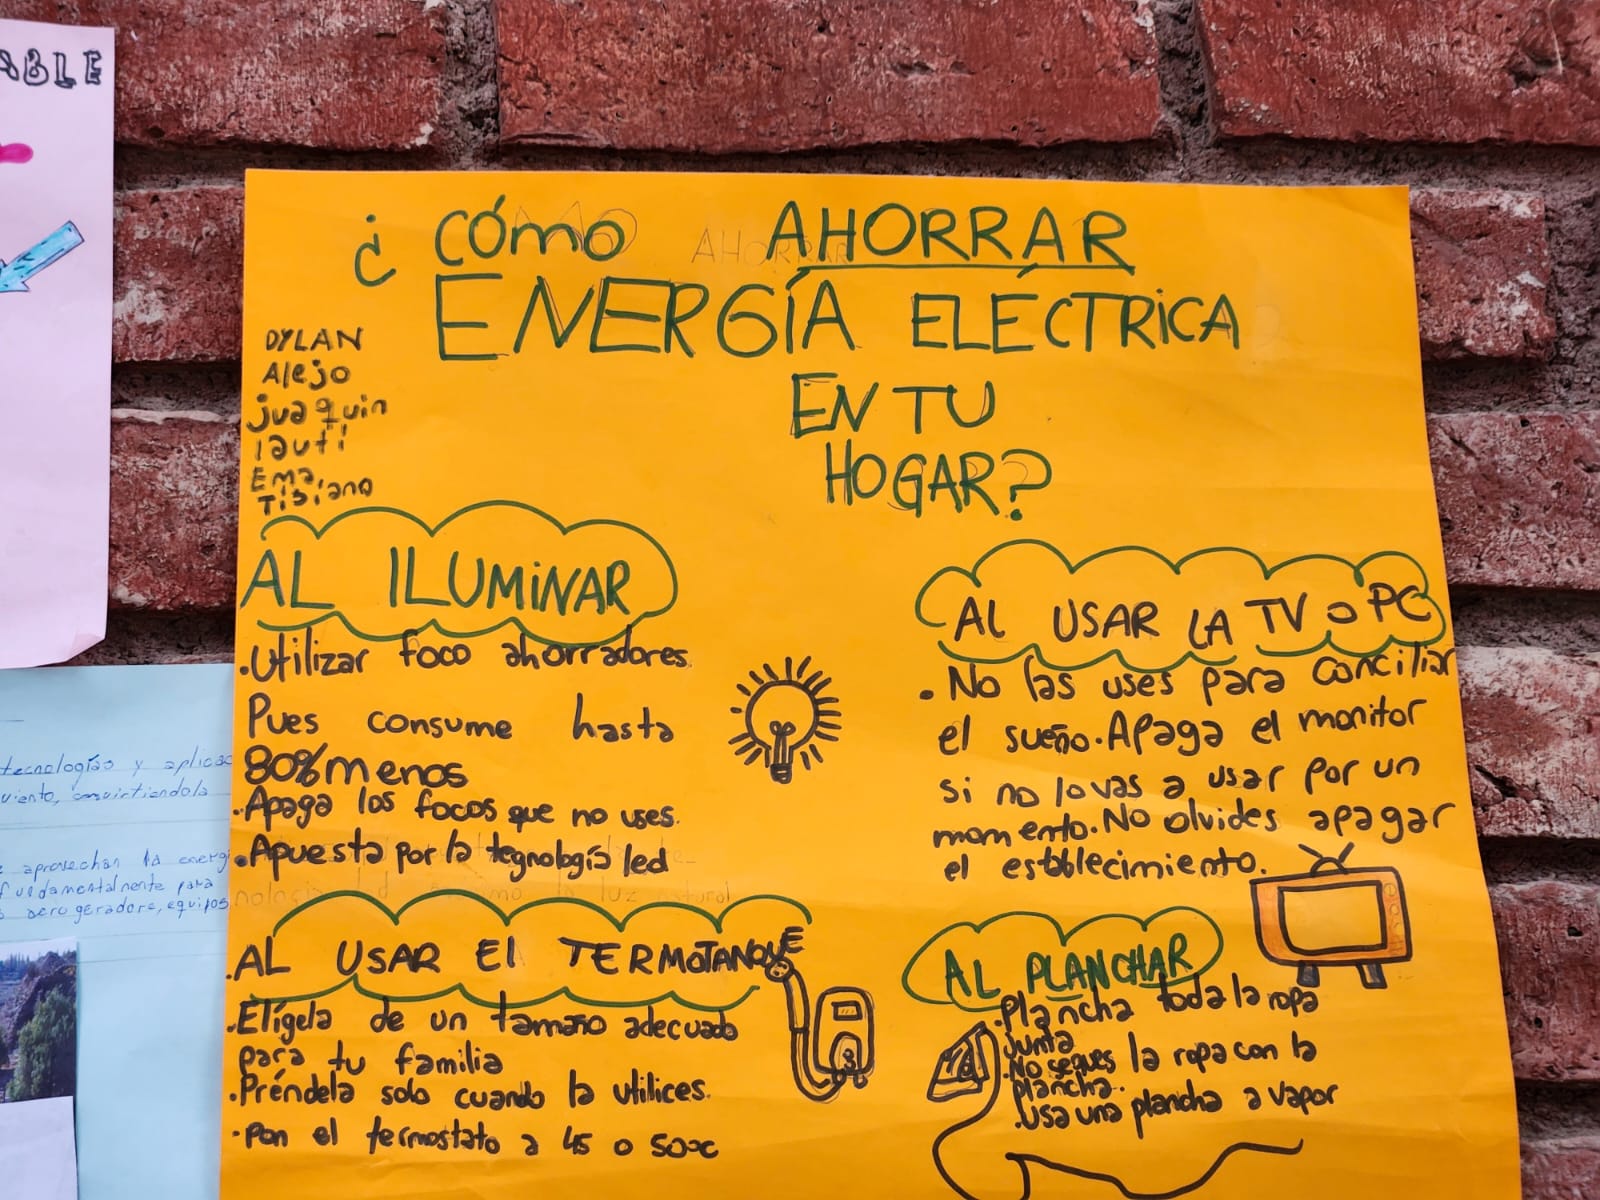 ABLE
¿CÓMO AHORRAR
ENERGÍA ELÉCTRICA
EN TU
HOGAR?
DYLAN
Alejo
juaquin
lauti
Ema
Tisiano
AL ILUMINAR
.Utilizar foco ahorradores
Pues consume hasta
80% menos
.Apaga los focos que no uses.
.Apuesta por la tegnología led
AL USAR LA TV o PC
. No las uses para conciliar
el sueño. Apaga el monitor
si no lo vas a usar por un
momento. No olvides apagar
el establecimiento.
.AL USAR El TERMOTANQUE
.Elígela de un tamaño adecuado
para tu familia
.Préndela solo cuando la utilices.
.pon el termostato a 45 o 50°c
AL PLANCHAR
.Plancha toda la ropa
junta
.No seques la ropa con la
plancha.
.Usa una plancha a vapor
tecnologías y aplicac
viento, convirtiendola
aprovechan la energi
fundamentalmente para
aerogeradore, equipos